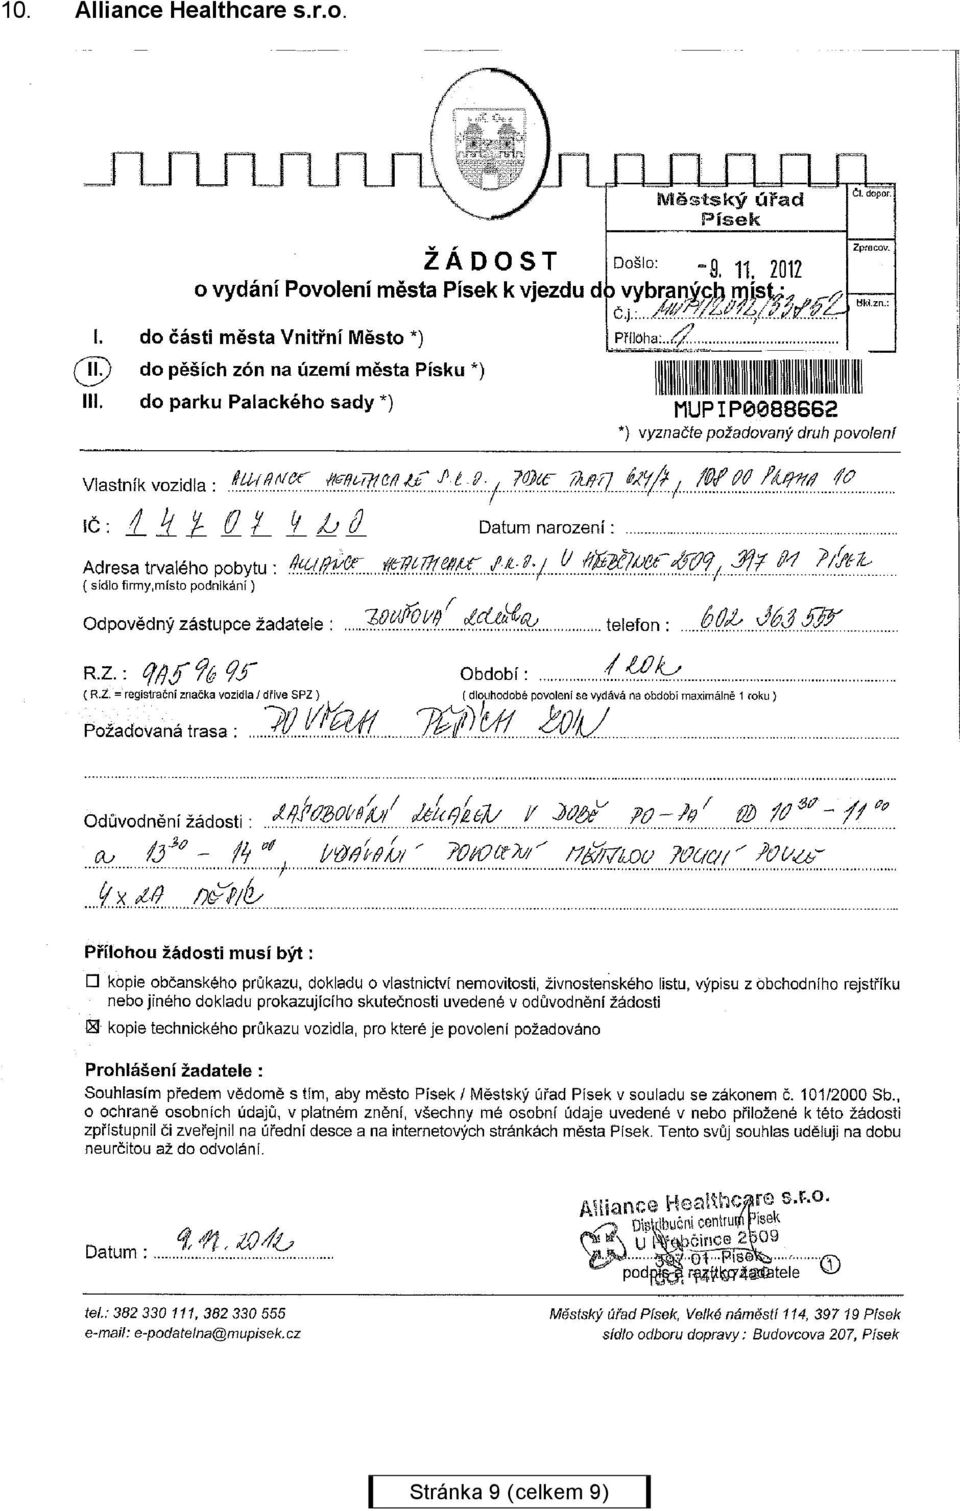 10. Alliance Healthcare s.r.o.
Městský úřad
Písek
Čl. dopor.
Zpracov.
Ukl.zn.:
Došlo: -9. 11. 2012
ŽÁDOST
o vydání Povolení města Písek k vjezdu do vybraných míst:
Č.j.: MUPI/2012/33852
Příloha:
I. do části města Vnitřní Město *)
II. do pěších zón na území města Písku *)
III. do parku Palackého sady *)
MUPIP0088662
*) vyznačte požadovaný druh povolení
Vlastník vozidla : ALLIANCE HEALTHCARE S.R.O., PODLE TRATI 624/7, 108 00 PRAHA 10
IČ : 1 4 7 0 7 4 2 0 Datum narození :
Adresa trvalého pobytu : ALLIANCE HEALTHCARE S.R.O., U HŘEBČINCE 2509, 397 01 PÍSEK
( sídlo firmy,místo podnikání )
Odpovědný zástupce žadatele : Zdeňka telefon : 602 363 555
R.Z. : 9A5 9695 Období : 1 ROK
( R.Z. = registrační značka vozidla / dříve SPZ ) ( dlouhodobé povolení se vydává na období maximálně 1 roku )
Požadovaná trasa : DO VŠECH PĚŠÍCH ZON
Odůvodnění žádosti : ZÁSOBOVÁNÍ LÉKÁREN V DOBĚ PO - PÁ OD 10 30 - 11 00
a 13 30 - 14 00, VYDÁVÁNÍ POVOLENÍ MĚSTSKOU POLICIÍ POUZE
4 x ZA MĚSÍC
Přílohou žádosti musí být :
☐ kopie občanského průkazu, dokladu o vlastnictví nemovitosti, živnostenského listu, výpisu z obchodního rejstříku
nebo jíného dokladu prokazujícího skutečnosti uvedené v odůvodnění žádosti
☒ kopie technického průkazu vozidla, pro které je povolení požadováno
Prohlášení žadatele :
Souhlasím předem vědomě s tím, aby město Písek / Městský úřad Písek v souladu se zákonem č. 101/2000 Sb.,
o ochraně osobních údajů, v platném znění, všechny mé osobní údaje uvedené v nebo přiložené k této žádosti
zpřístupnil či zveřejnil na úřední desce a na internetových stránkách města Písek. Tento svůj souhlas uděluji na dobu
neurčitou až do odvolání.
Alliance Healthcare s.r.o.
Distribuční centrum Písek
U Hřebčince 2509
397 01 Písek
IČO: 14707420
Datum : 9. 11. 2012
podpis a razítko žadatele 1
tel.: 382 330 111, 382 330 555 Městský úřad Písek, Velké náměstí 114, 397 19 Písek
e-mail: e-podatelna@mupisek.cz sídlo odboru dopravy : Budovcova 207, Písek
Stránka 9 (celkem 9)